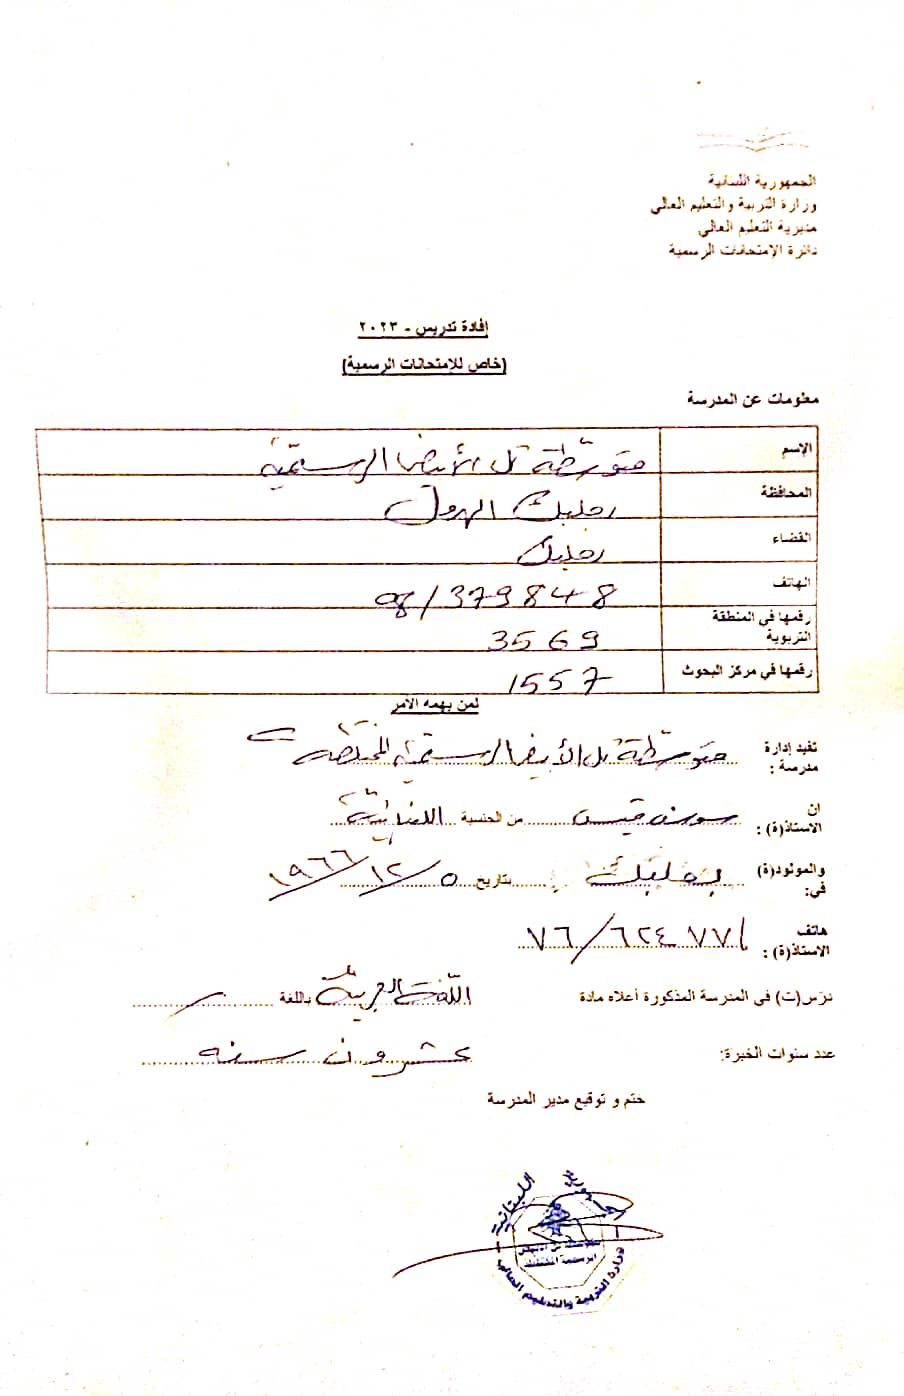 الجمهورية اللبنانية
وزارة التربية والتعليم العالي
مديرية التعليم العالي
دائرة الإمتحانات الرسمية
إفادة تدريس - ٢٠٢٣
(خاص للإمتحانات الرسمية)
معلومات عن المدرسة
الإسم متوسطة تل الأبيض الرسمية
المحافظة بعلبك الهرمل
القضاء بعلبك
الهاتف 08/379848
رقمها في المنطقة التربوية 3569
رقمها في مركز البحوث 1557
لمن يهمه الأمر
تفيد إدارة مدرسة : متوسطة تل الأبيض الرسمية المختلطة
ان الاستاذ(ة) : سوزان قيس من الجنسية اللبنانية
والمولود(ة) في: بعلبك بتاريخ ٥/١٢/١٩٦٦
هاتف الاستاذ(ة) : ٧٦/٦٢٤٧٧١
درّس(ت) في المدرسة المذكورة أعلاه مادة اللّغة العربيّة باللغة /
عدد سنوات الخبرة: عشرون سنة
ختم و توقيع مدير المدرسة
الجمهورية اللبنانية
وزارة التربية والتعليم العالي